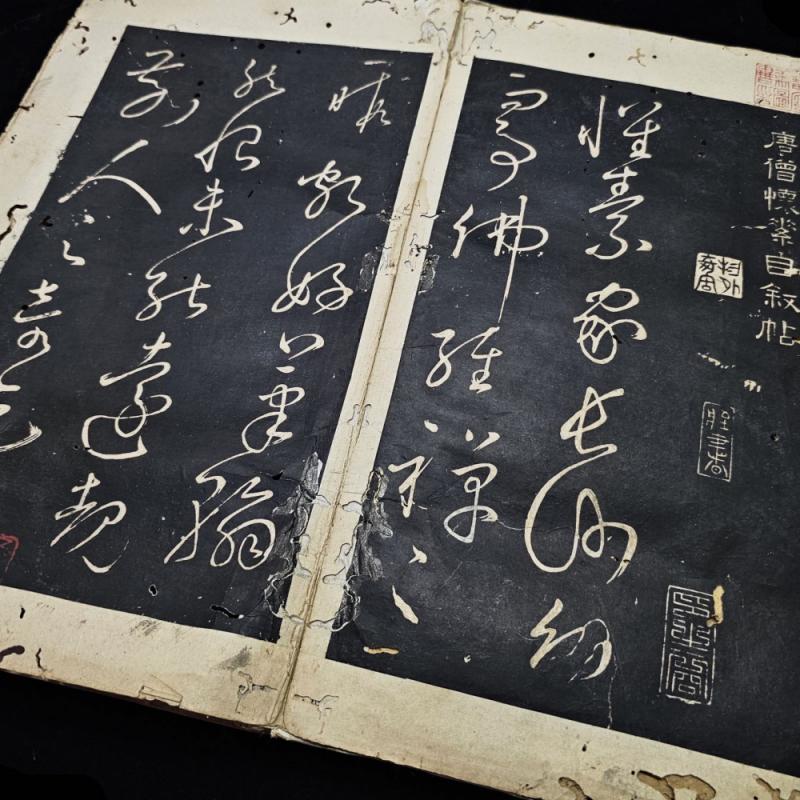 唐僧懷素自叙帖
懷素家長沙幼
而事佛經禪之
暇頗好筆翰
然恨未能遠覩
前人之奇